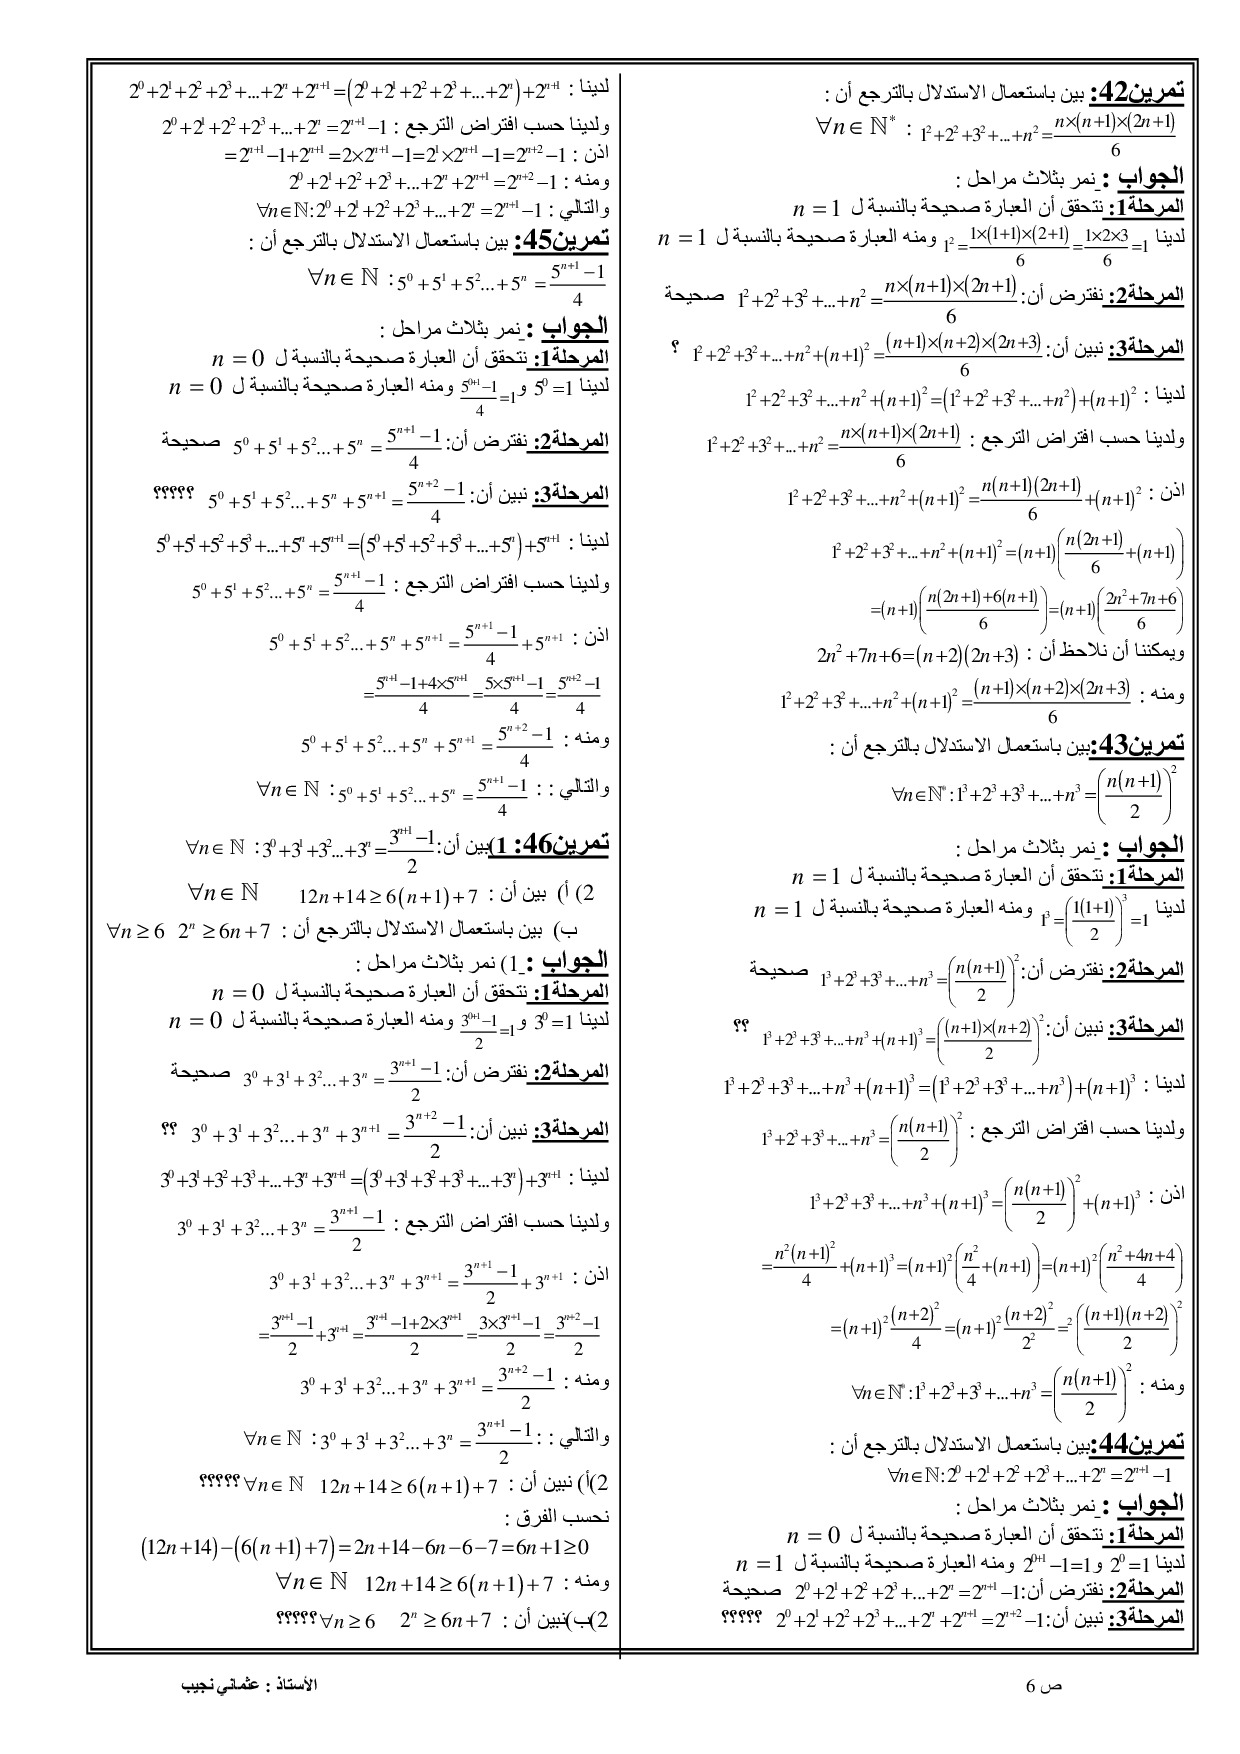 تمرين42: بين باستعمال الاستدلال بالترجع أن :
∀n ∈ ℕ* : 1²+2²+3²+...+n² = n×(n+1)×(2n+1)/6
الجواب : نمر بثلاث مراحل :
المرحلة1: نتحقق أن العبارة صحيحة بالنسبة ل n = 1
لدينا 1² = 1×(1+1)×(2+1)/6 = 1×2×3/6 = 1 ومنه العبارة صحيحة بالنسبة ل n = 1
المرحلة2: نفترض أن: 1²+2²+3²+...+n² = n×(n+1)×(2n+1)/6 صحيحة
المرحلة3: نبين أن: 1²+2²+3²+...+n²+(n+1)² = (n+1)×(n+2)×(2n+3)/6 ؟
لدينا : 1²+2²+3²+...+n²+(n+1)² = (1²+2²+3²+...+n²)+(n+1)²
ولدينا حسب افتراض الترجع : 1²+2²+3²+...+n² = n×(n+1)×(2n+1)/6
اذن : 1²+2²+3²+...+n²+(n+1)² = n(n+1)(2n+1)/6 + (n+1)²
1²+2²+3²+...+n²+(n+1)² = (n+1)(n(2n+1)/6 + (n+1))
= (n+1)((n(2n+1)+6(n+1))/6) = (n+1)((2n²+7n+6)/6)
ويمكننا أن نلاحظ أن : 2n²+7n+6 = (n+2)(2n+3)
ومنه : 1²+2²+3²+...+n²+(n+1)² = (n+1)×(n+2)×(2n+3)/6
تمرين43: بين باستعمال الاستدلال بالترجع أن :
∀n∈ℕ* : 1³+2³+3³+...+n³ = (n(n+1)/2)²
الجواب : نمر بثلاث مراحل :
المرحلة1: نتحقق أن العبارة صحيحة بالنسبة ل n = 1
لدينا 1³ = (1(1+1)/2)³ = 1 ومنه العبارة صحيحة بالنسبة ل n = 1
المرحلة2: نفترض أن: 1³+2³+3³+...+n³ = (n(n+1)/2)² صحيحة
المرحلة3: نبين أن: 1³+2³+3³+...+n³+(n+1)³ = ((n+1)×(n+2)/2)² ؟؟
لدينا : 1³+2³+3³+...+n³+(n+1)³ = (1³+2³+3³+...+n³)+(n+1)³
ولدينا حسب افتراض الترجع : 1³+2³+3³+...+n³ = (n(n+1)/2)²
اذن : 1³+2³+3³+...+n³+(n+1)³ = (n(n+1)/2)² + (n+1)³
= n²(n+1)²/4 + (n+1)³ = (n+1)²(n²/4 + (n+1)) = (n+1)²((n²+4n+4)/4)
= (n+1)² (n+2)²/4 = (n+1)² (n+2)²/2² = ²((n+1)(n+2)/2)²
ومنه : ∀n∈ℕ* : 1³+2³+3³+...+n³ = (n(n+1)/2)²
تمرين44: بين باستعمال الاستدلال بالترجع أن :
∀n∈ℕ: 2⁰+2¹+2²+2³+...+2ⁿ = 2ⁿ⁺¹−1
الجواب : نمر بثلاث مراحل :
المرحلة1: نتحقق أن العبارة صحيحة بالنسبة ل n = 0
لدينا 2⁰=1 و 2⁰⁺¹−1=1 ومنه العبارة صحيحة بالنسبة ل n = 1
المرحلة2: نفترض أن: 2⁰+2¹+2²+2³+...+2ⁿ = 2ⁿ⁺¹−1 صحيحة
المرحلة3: نبين أن: 2⁰+2¹+2²+2³+...+2ⁿ+2ⁿ⁺¹ = 2ⁿ⁺²−1 ؟؟؟؟؟
لدينا : 2⁰+2¹+2²+2³+...+2ⁿ+2ⁿ⁺¹ = (2⁰+2¹+2²+2³+...+2ⁿ)+2ⁿ⁺¹
ولدينا حسب افتراض الترجع : 2⁰+2¹+2²+2³+...+2ⁿ = 2ⁿ⁺¹−1
اذن : = 2ⁿ⁺¹−1+2ⁿ⁺¹ = 2×2ⁿ⁺¹−1 = 2¹×2ⁿ⁺¹−1 = 2ⁿ⁺²−1
ومنه : 2⁰+2¹+2²+2³+...+2ⁿ+2ⁿ⁺¹ = 2ⁿ⁺²−1
والتالي : ∀n∈ℕ: 2⁰+2¹+2²+2³+...+2ⁿ = 2ⁿ⁺¹−1
تمرين45: بين باستعمال الاستدلال بالترجع أن :
∀n ∈ ℕ : 5⁰+5¹+5²...+5ⁿ = (5ⁿ⁺¹−1)/4
الجواب : نمر بثلاث مراحل :
المرحلة1: نتحقق أن العبارة صحيحة بالنسبة ل n = 0
لدينا 5⁰=1 و (5⁰⁺¹−1)/4=1 ومنه العبارة صحيحة بالنسبة ل n = 0
المرحلة2: نفترض أن: 5⁰+5¹+5²...+5ⁿ = (5ⁿ⁺¹−1)/4 صحيحة
المرحلة3: نبين أن: 5⁰+5¹+5²...+5ⁿ+5ⁿ⁺¹ = (5ⁿ⁺²−1)/4 ؟؟؟؟؟
لدينا : 5⁰+5¹+5²+5³+...+5ⁿ+5ⁿ⁺¹ = (5⁰+5¹+5²+5³+...+5ⁿ)+5ⁿ⁺¹
ولدينا حسب افتراض الترجع : 5⁰+5¹+5²...+5ⁿ = (5ⁿ⁺¹−1)/4
اذن : 5⁰+5¹+5²...+5ⁿ+5ⁿ⁺¹ = (5ⁿ⁺¹−1)/4 + 5ⁿ⁺¹
= (5ⁿ⁺¹−1+4×5ⁿ⁺¹)/4 = (5×5ⁿ⁺¹−1)/4 = (5ⁿ⁺²−1)/4
ومنه : 5⁰+5¹+5²...+5ⁿ+5ⁿ⁺¹ = (5ⁿ⁺²−1)/4
والتالي : : ∀n ∈ ℕ : 5⁰+5¹+5²...+5ⁿ = (5ⁿ⁺¹−1)/4
تمرين46: 1)بين أن: ∀n ∈ ℕ : 3⁰+3¹+3²...+3ⁿ = (3ⁿ⁺¹−1)/2
2) أ) بين أن : 12n+14 ≥ 6(n+1)+7 ∀n ∈ ℕ
ب) بين باستعمال الاستدلال بالترجع أن : 2ⁿ ≥ 6n+7 ∀n ≥ 6
الجواب : 1) نمر بثلاث مراحل :
المرحلة1: نتحقق أن العبارة صحيحة بالنسبة ل n = 0
لدينا 3⁰=1 و (3⁰⁺¹−1)/2=1 ومنه العبارة صحيحة بالنسبة ل n = 0
المرحلة2: نفترض أن: 3⁰+3¹+3²...+3ⁿ = (3ⁿ⁺¹−1)/2 صحيحة
المرحلة3: نبين أن: 3⁰+3¹+3²...+3ⁿ+3ⁿ⁺¹ = (3ⁿ⁺²−1)/2 ؟؟
لدينا : 3⁰+3¹+3²+3³+...+3ⁿ+3ⁿ⁺¹ = (3⁰+3¹+3²+3³+...+3ⁿ)+3ⁿ⁺¹
ولدينا حسب افتراض الترجع : 3⁰+3¹+3²...+3ⁿ = (3ⁿ⁺¹−1)/2
اذن : 3⁰+3¹+3²...+3ⁿ+3ⁿ⁺¹ = (3ⁿ⁺¹−1)/2 + 3ⁿ⁺¹
= (3ⁿ⁺¹−1)/2 + 3ⁿ⁺¹ = (3ⁿ⁺¹−1+2×3ⁿ⁺¹)/2 = (3×3ⁿ⁺¹−1)/2 = (3ⁿ⁺²−1)/2
ومنه : 3⁰+3¹+3²...+3ⁿ+3ⁿ⁺¹ = (3ⁿ⁺²−1)/2
والتالي : : ∀n ∈ ℕ : 3⁰+3¹+3²...+3ⁿ = (3ⁿ⁺¹−1)/2
2)أ) نبين أن : 12n+14 ≥ 6(n+1)+7 ∀n ∈ ℕ ؟؟؟؟؟
نحسب الفرق :
(12n+14)−(6(n+1)+7) = 2n+14−6n−6−7 = 6n+1 ≥ 0
ومنه : 12n+14 ≥ 6(n+1)+7 ∀n ∈ ℕ
2)ب)نبين أن : 2ⁿ ≥ 6n+7 ∀n ≥ 6 ؟؟؟؟؟
ص 6
الأستاذ : عثماني نجيب